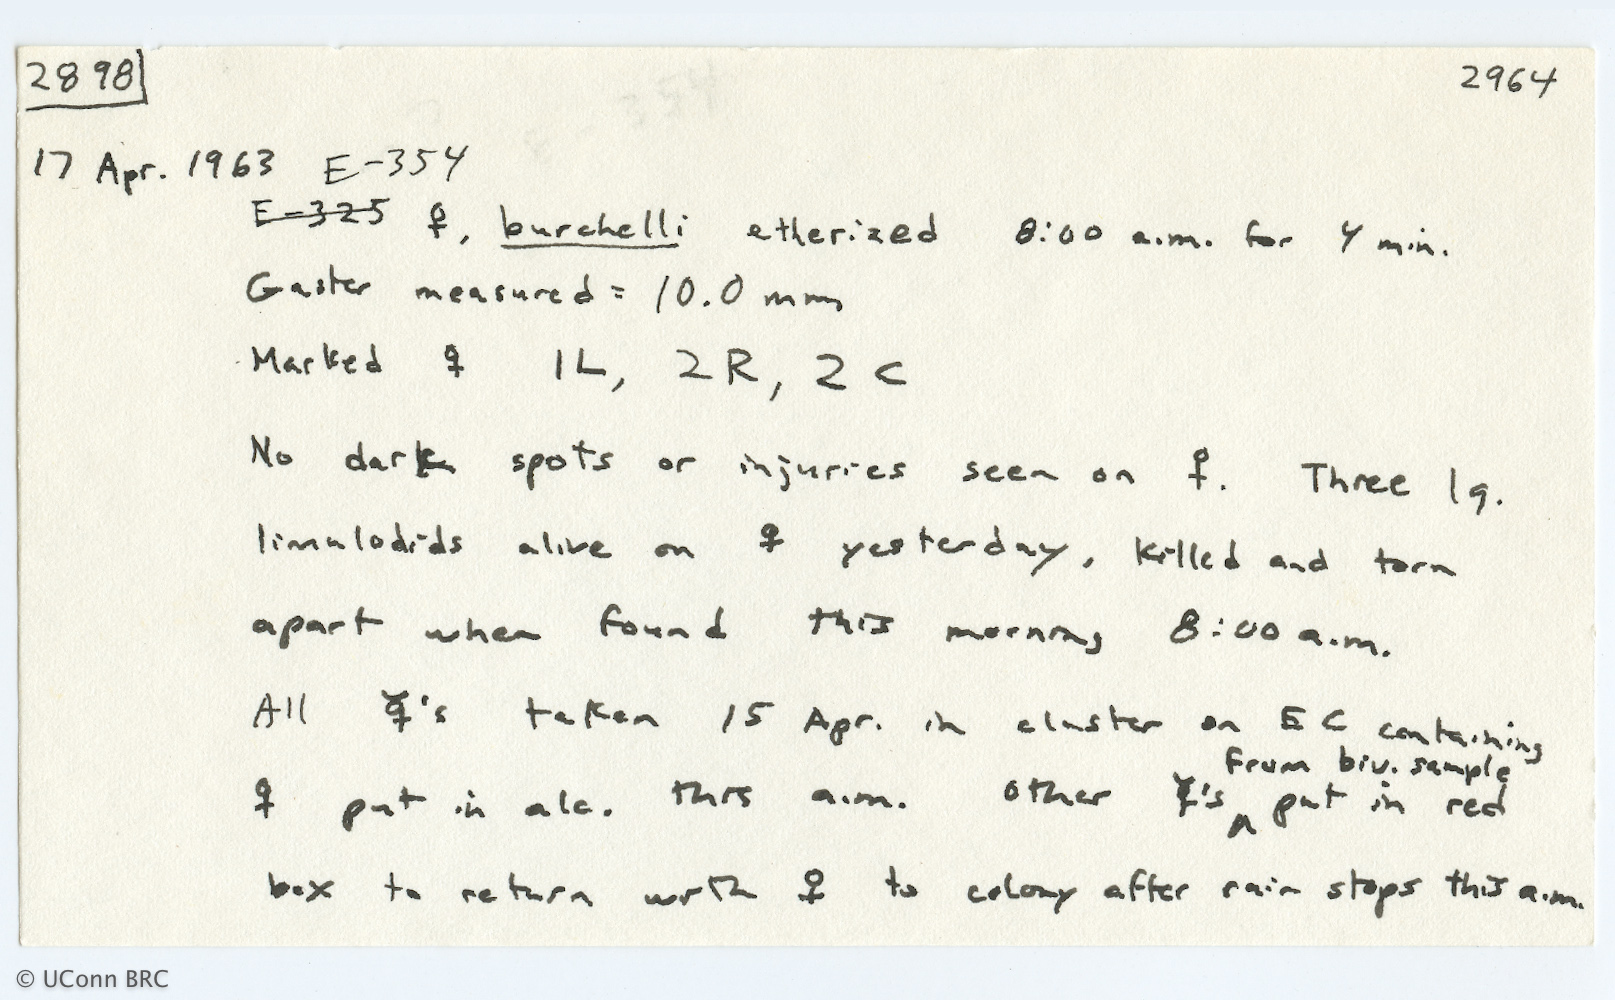 2898
2964
17 Apr. 1963 E-354
E-325 ♀, burchelli etherized 8:00 a.m. for 4 min.
Gaster measured = 10.0 mm
Marked ♀ 1L, 2R, 2C
No dark spots or injuries seen on ♀. Three lg.
limulodids alive on ♀ yesterday, killed and torn
apart when found this morning 8:00 a.m.
All ☿'s taken 15 Apr. in cluster on EC containing
from biv. sample
♀ put in alc. this a.m. Other ☿'s ^ put in red
box to return with ♀ to colony after rain stops this a.m.
© UConn BRC